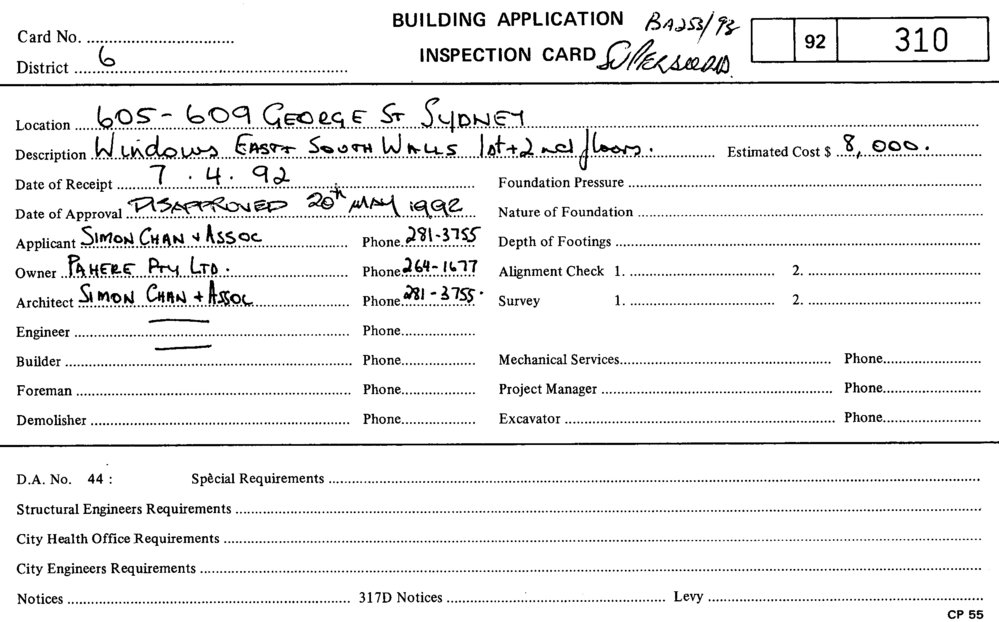 BUILDING APPLICATION BA253/93
Card No. 92 310
INSPECTION CARD
District 6
Location 605-609 GEORGE ST SYDNEY
Description WINDOWS EAST + SOUTH WALLS 1st + 2nd floors. Estimated Cost $ 8,000.
Date of Receipt 7.4.92 Foundation Pressure
Date of Approval DISAPPROVED 20th MAY 1992 Nature of Foundation
Applicant SIMON CHAN + ASSOC Phone 281-3755 Depth of Footings
Owner PAHERE PTY LTD. Phone 264-1677 Alignment Check 1. 2.
Architect SIMON CHAN + ASSOC Phone 281-3755. Survey 1. 2.
Engineer Phone
Builder Phone Mechanical Services Phone
Foreman Phone Project Manager Phone
Demolisher Phone Excavator Phone
D.A. No. 44 : Special Requirements
Structural Engineers Requirements
City Health Office Requirements
City Engineers Requirements
Notices 317D Notices Levy
CP 55